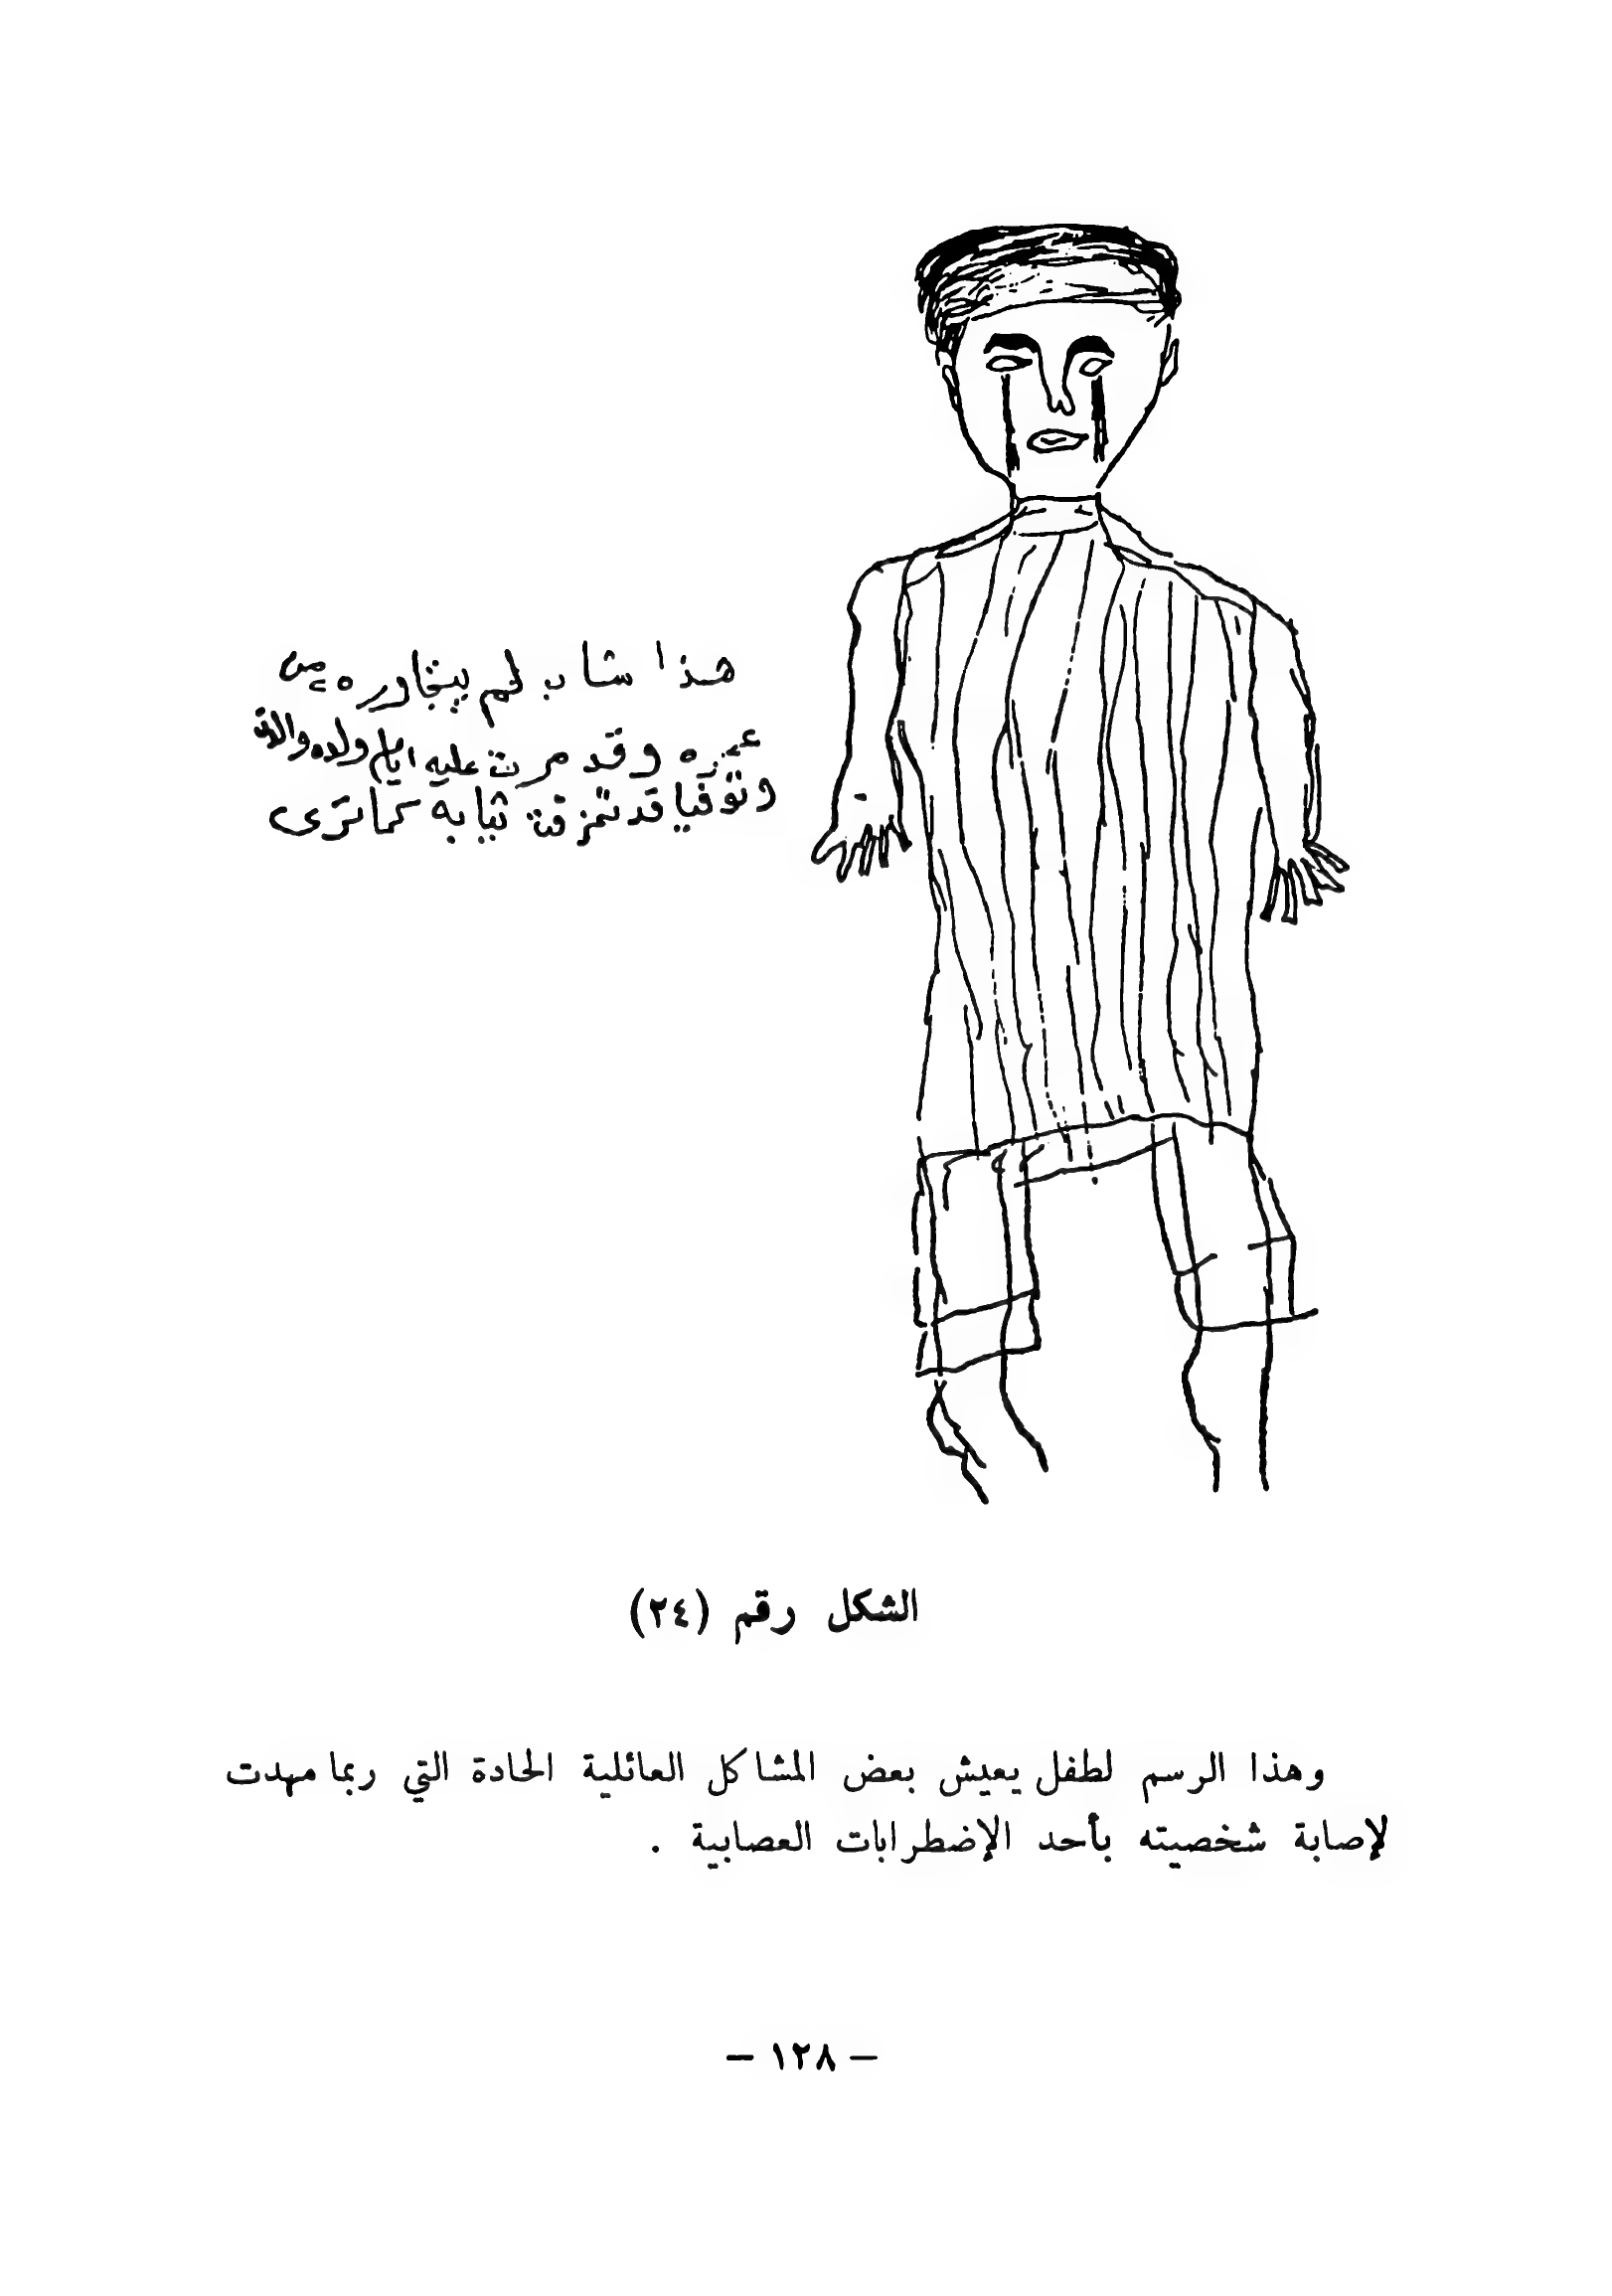 هذا شاب لم يتجاوره من
عمره وقد مرت عليه ايام ولده
وتوفيا قد تمزقت ثيابه كما ترى
الشكل رقم (٢٤)
وهذا الرسم لطفل يعيش بعض المشاكل العائلية الحادة التي ربما مهدت
لإصابة شخصيته بأحد الإضطرابات العصابية .
— ١٢٨ —